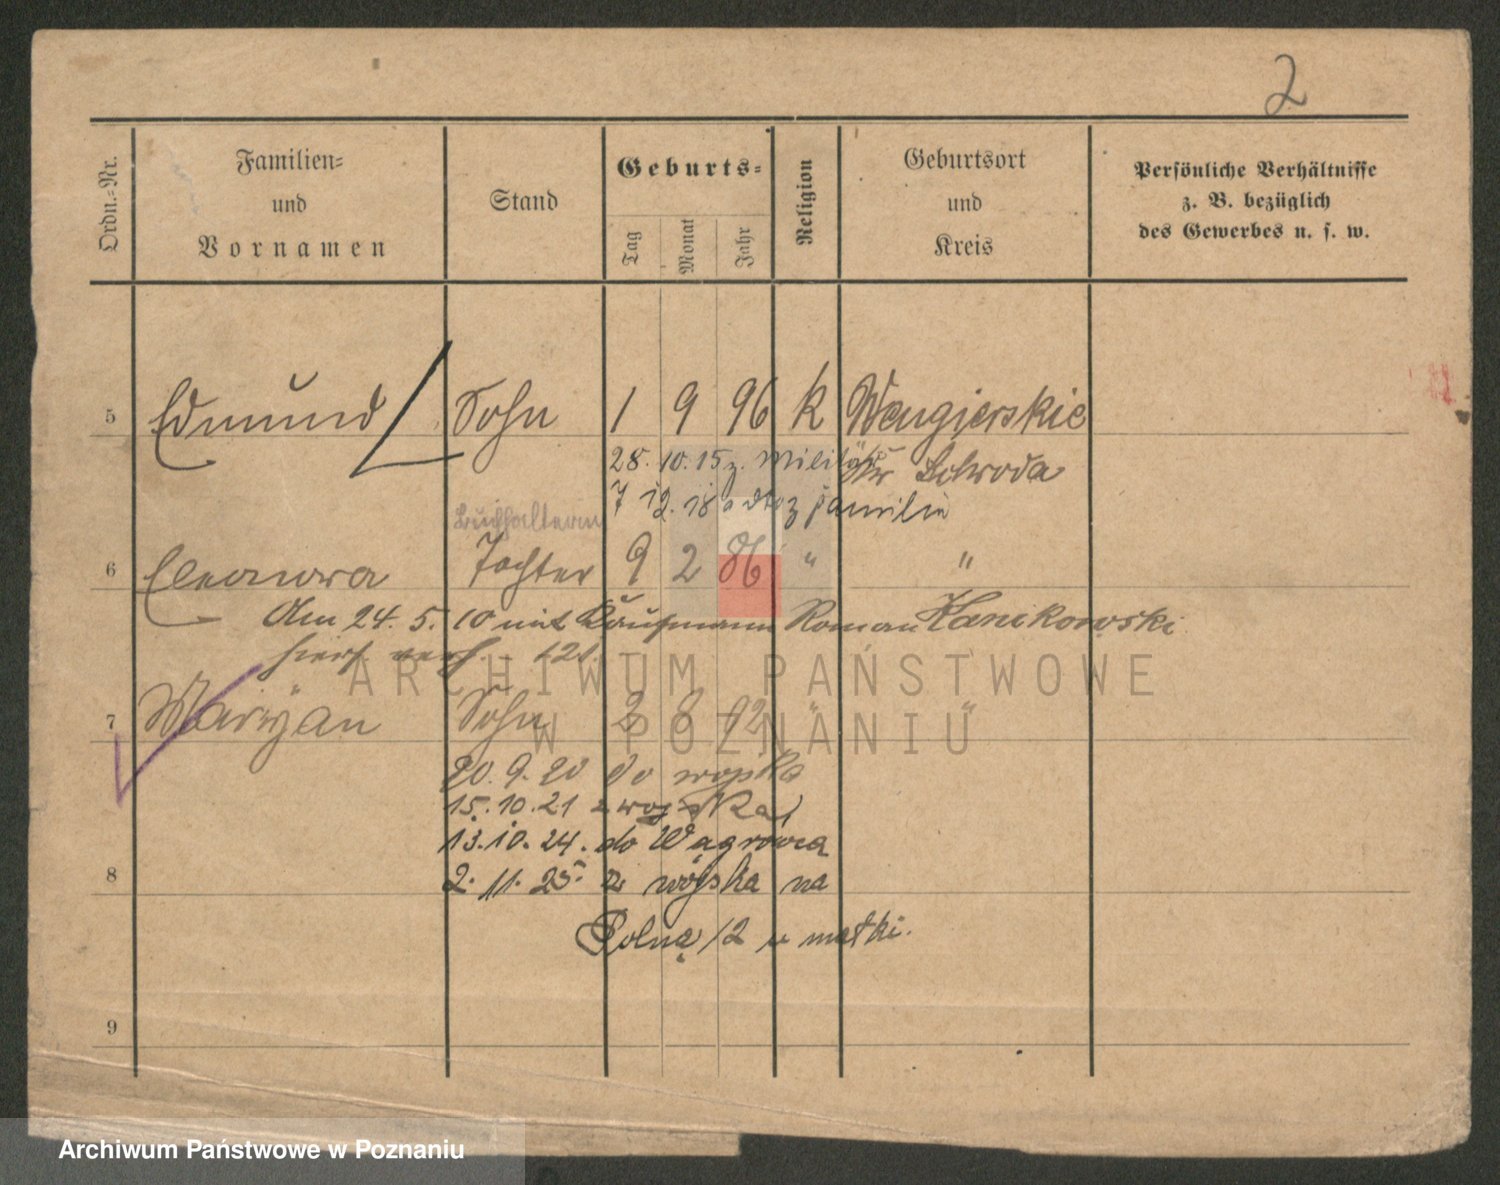 2
Ordn.-Nr.
Familien-
und
Vornamen
Stand
Geburts-
Tag
Monat
Jahr
Religion
Geburtsort
und
Kreis
Persönliche Verhältnisse
z. B. bezüglich
des Gewerbes u. s. w.
5 Edmund Sohn 1 9 96 K Wengierskie
28. 10. 15 z. Militär
Kr Schroda
7 12. 18 z Familie
Buchhalterin
6 Eleonora Tochter 9 2 86 " "
Am 24. 5. 10 mit Kaufmann Roman Kanikowski
hiers. verh.
7 Maryan Sohn 2 8 " "
20. 9. 20 do wojska
15. 10. 21 z wojska
13. 10. 24. do Wągrowca
8 2. 11. 25. z wojska na
Polną 12 u matki.
9
ARCHIWUM PAŃSTWOWE
W POZNANIU
Archiwum Państwowe w Poznaniu